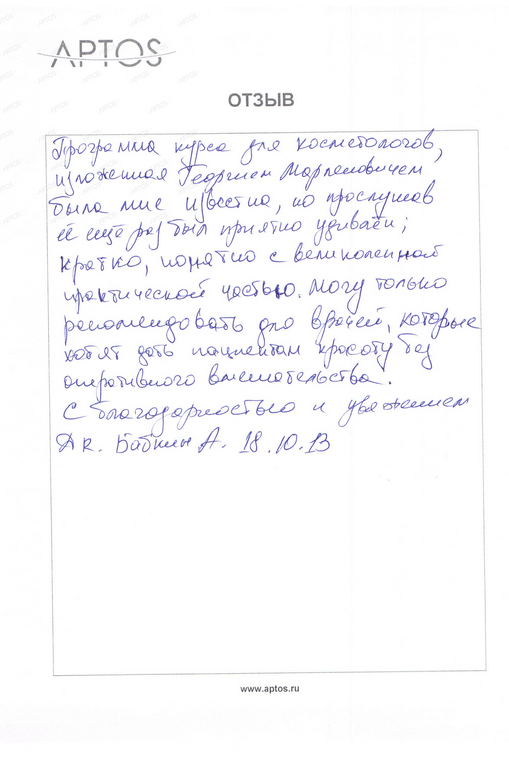 APTOS
ОТЗЫВ
Программа курса для косметологов,
изложенная Георгием Марленовичем
была мне известна, но прослушав
её ещё раз был приятно удивлён;
кратко, понятно с великолепной
практической частью. Могу только
рекомендовать для врачей, которые
хотят дать пациентам красоту без
оперативного вмешательства.
С благодарностью и уважением
Др. Бабкин А. 18.10.13
www.aptos.ru